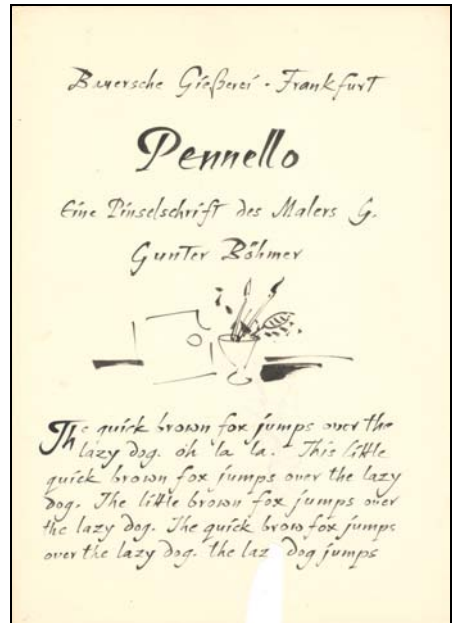 Bauersche Gießerei - Frankfurt
Pennello
Eine Pinselschrift des Malers G.
Gunter Böhmer
The quick brown fox jumps over the
lazy dog. oh la la. This little
quick brown fox jumps over the lazy
dog. The little brown fox jumps over
the lazy dog. The quick brow fox jumps
over the lazy dog. the laz dog jumps